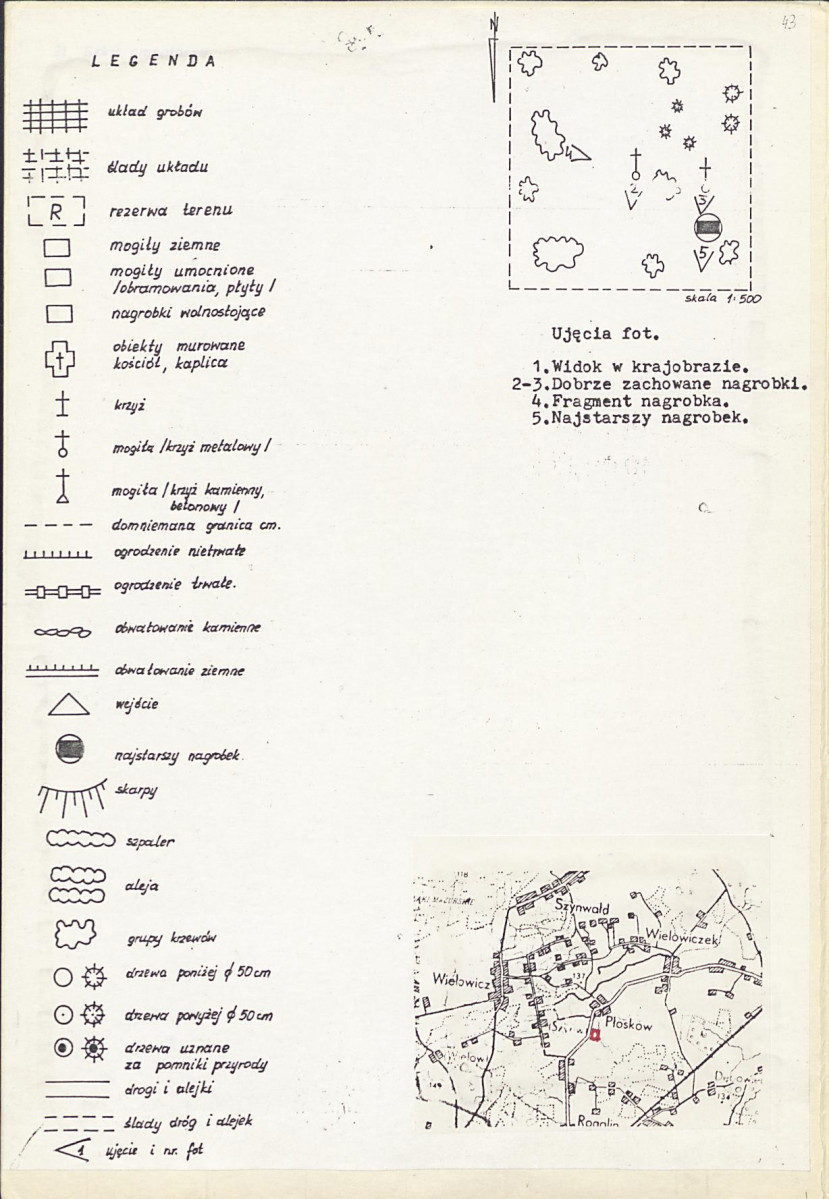 43
LEGENDA
układ grobów
ślady układu
R
rezerwa terenu
mogiły ziemne
mogiły umocnione
/obramowania, płyty /
nagrobki wolnostojące
obiekty murowane
kościół, kaplica
krzyż
mogiła /krzyż metalowy /
mogiła / krzyż kamienny,
betonowy /
domniemana granica cm.
ogrodzenie nietrwałe
ogrodzenie trwałe.
obwałowanie kamienne
obwałowanie ziemne
wejście
najstarszy nagrobek
skarpy
szpaler
aleja
grupy krzewów
drzewa poniżej ϕ 50 cm
drzewa powyżej ϕ 50 cm
drzewa uznane
za pomniki przyrody
drogi i alejki
ślady dróg i alejek
1
ujęcie i nr. fot
N
4
2
3
5
skala 1:500
Ujęcia fot.
1. Widok w krajobrazie.
2-3. Dobrze zachowane nagrobki.
4. Fragment nagrobka.
5. Najstarszy nagrobek.
118
Szynwałd
Wielowiczek
Wielowicz
137
Płosków
134
Rogalin